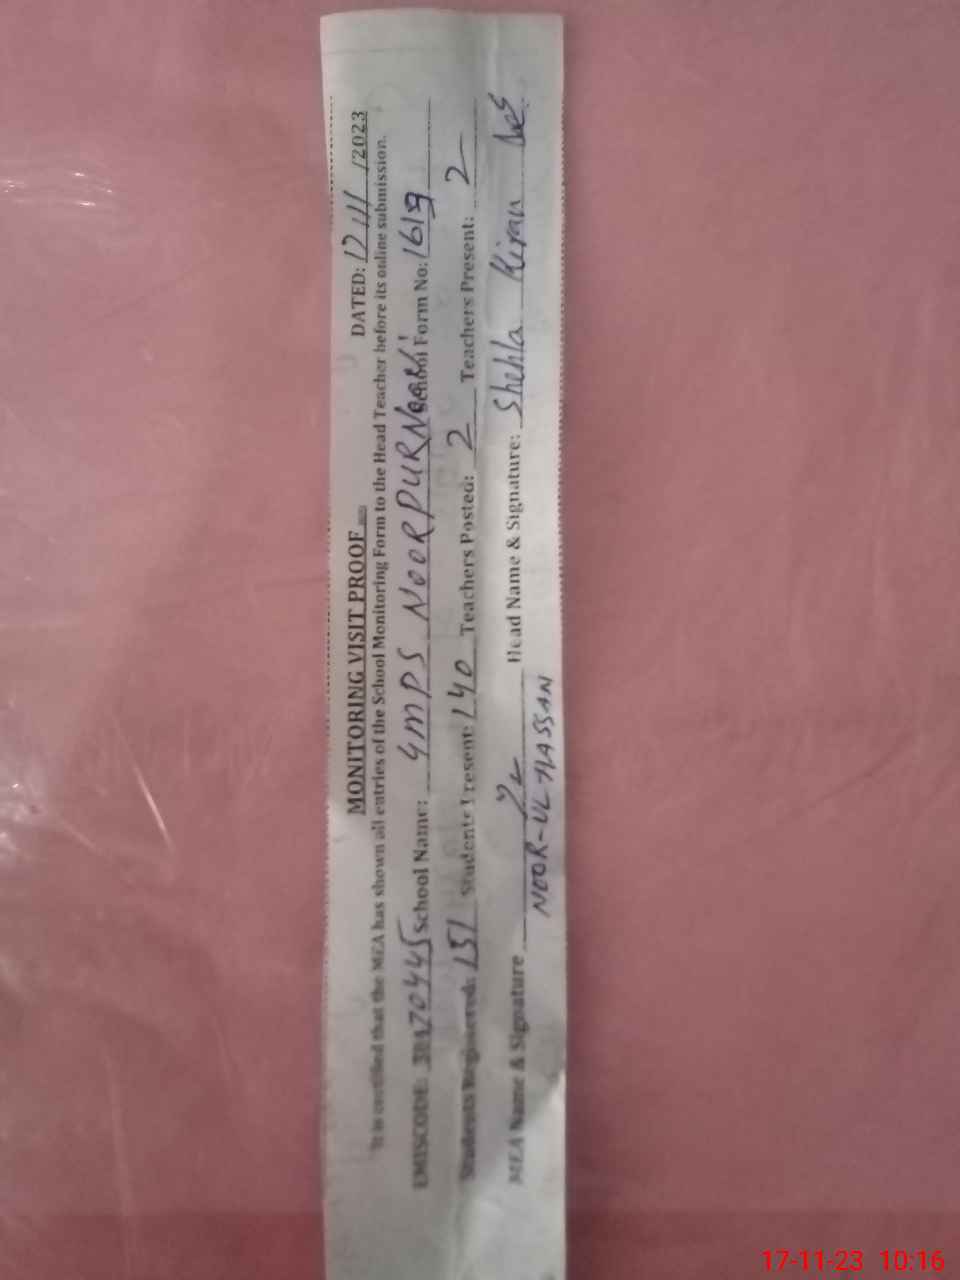 MONITORING VISIT PROOF DATED: 17/11/2023
It is certified that the MEA has shown all entries of the School Monitoring Form to the Head Teacher before its online submission.
EMISCODE: School Name: GMPS NOORPUR School Form No: 1619
Students Registered: 151 Students Present: 140 Teachers Posted: 2 Teachers Present: 2
MEA Name & Signature Head Name & Signature: Shehla Kiran
NOOR-UL-HASSAN
17-11-23 10:16